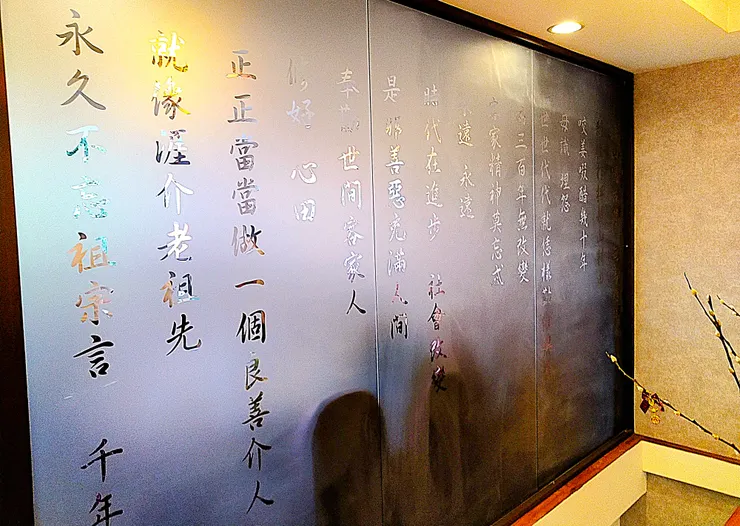 咬姜啜醋幾十年
毋識埋怨
世世代代就恁樣
三百年無改變
家精神莫忘忒
遠 永遠
時代在進步 社會改變
是非善惡充滿人間
奉勸世間客家人
修好 心田
正正當當做一個良善介人
就像涯介老祖先
永久不忘祖宗言 千年